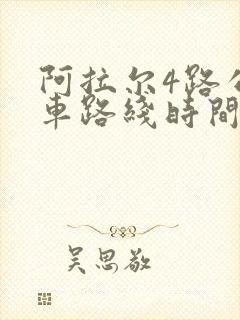 阿拉尔4路公
車路綫時間
吴思敬